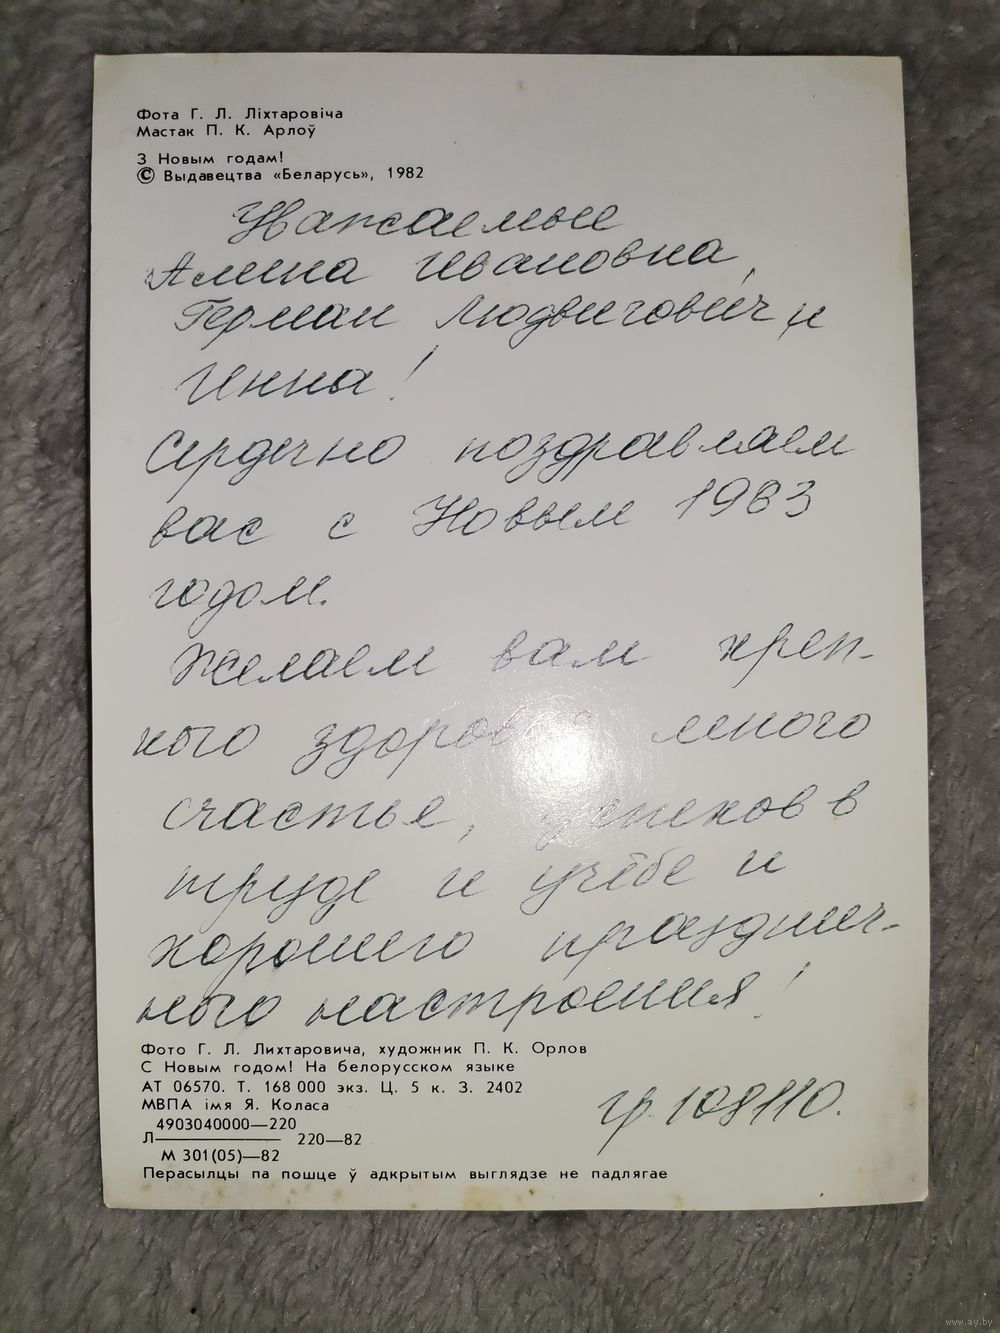 Фота Г. Л. Ліхтаровіча
Мастак П. К. Арлоў
З Новым годам!
© Выдавецтва «Беларусь», 1982
Уважаемые
Алина Ивановна,
Герман Людвигович и
Генна!
Сердечно поздравляем
вас с Новым 1983
годом.
Желаем вам креп-
кого здоровья много
счастье, успехов в
труде и учёбе и
хорошего празднич-
ного настроения!
Фото Г. Л. Лихтаровича, художник П. К. Орлов
С Новым годом! На белорусском языке
АТ 06570. Т. 168 000 экз. Ц. 5 к. З. 2402
МВПА імя Я. Коласа
4903040000—220
Л———————— 220—82
М 301(05)—82
Перасылцы па пошце ў адкрытым выглядзе не падлягае
гр. 108110.
www.ay.by